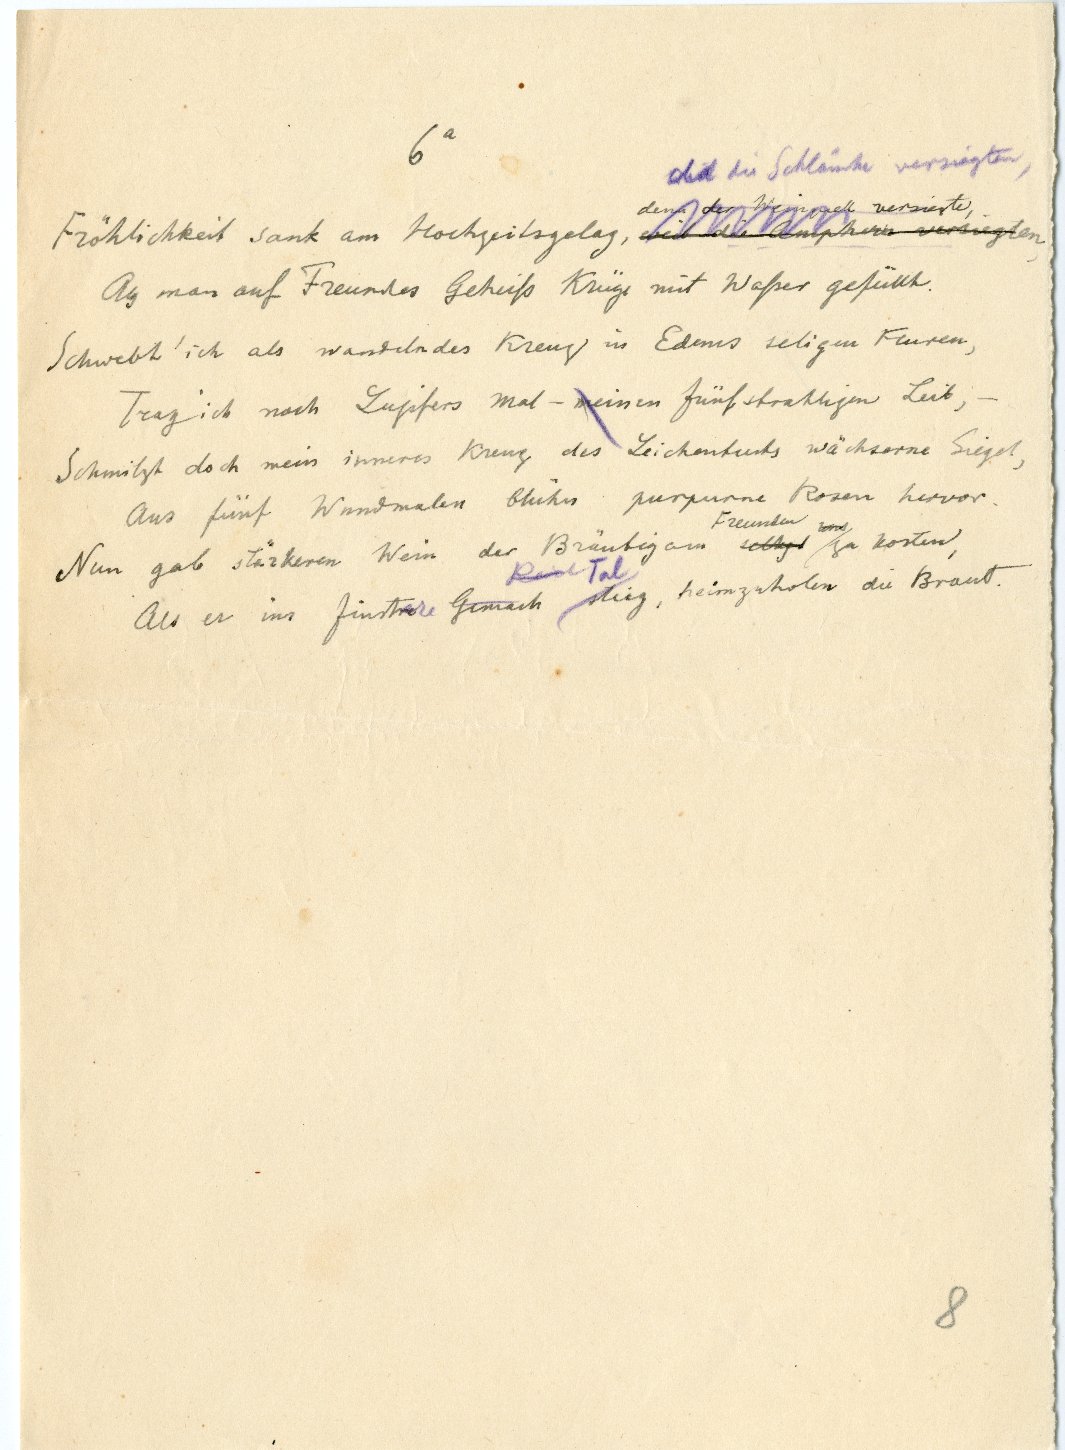 6a
die Schläuche versiegten,
denn der Weinquell versiegte,
Fröhlichkeit sank am Hochzeitsgelag, weil die Amphern versiegten,
Als man auf Freundes Geheiß Krüge mit Waßer gefüllt.
Schwebt' ich als wandelndes Kreuz in Edens seligen Fluren,
Trag' ich noch Luzifers Mal – meinen fünfstrahligen Leib, –
Schmilzt doch mein inneres Kreuz des Leichentuchs wächserne Siegel,
Aus fünf Wundmalen blühn purpurne Rosen hervor.
Freunden
Nun gab stärkeren Wein der Bräutigam selbst zu kosten,
Tal
Als er ins finstere Gemach stieg, heimzuholen die Braut.
8